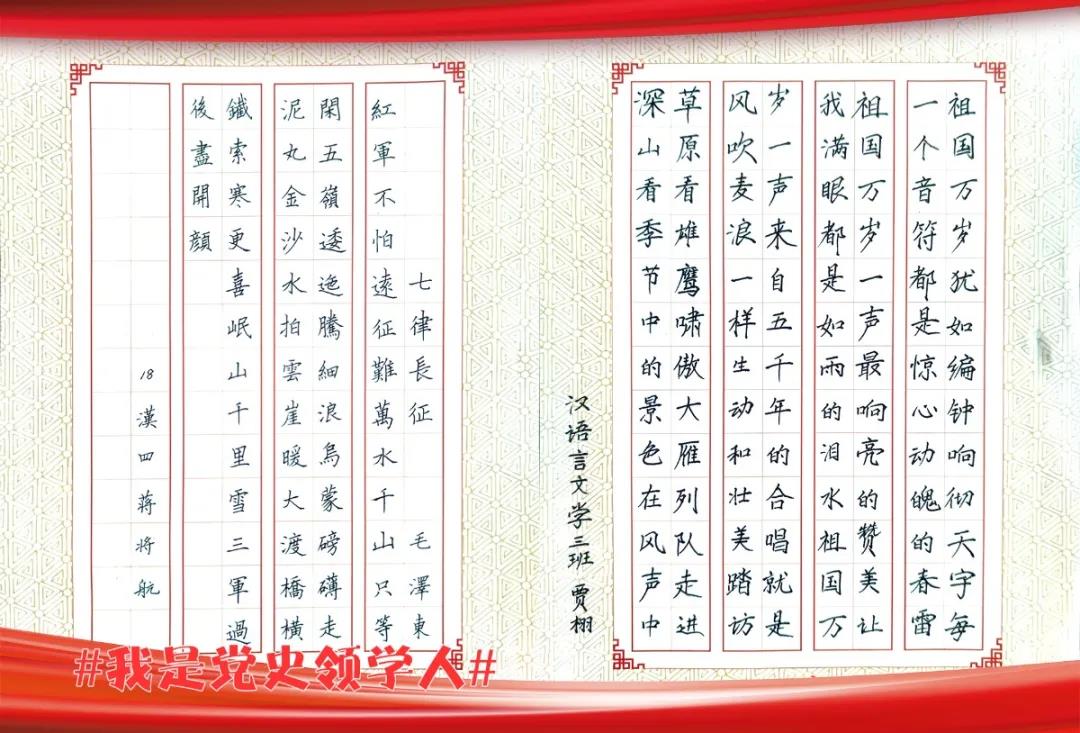 祖国万岁犹如编钟响彻天宇每
一个音符都是惊心动魄的春雷
祖国万岁一声最响亮的赞美让
我满眼都是如雨的泪水祖国万
岁一声来自五千年的合唱就是
风吹麦浪一样生动和壮美踏访
草原看雄鹰啸傲大雁列队走进
深山看季节中的景色在风声中
汉语言文学三班 贾栩
七律長征 毛澤東
紅軍不怕遠征難萬水千山只等
閑五嶺逶迤騰細浪烏蒙磅礴走
泥丸金沙水拍雲崖暖大渡橋橫
鐵索寒更喜岷山千里雪三軍過
後盡開顔
18漢四蔣將航
#我是党史领学人#